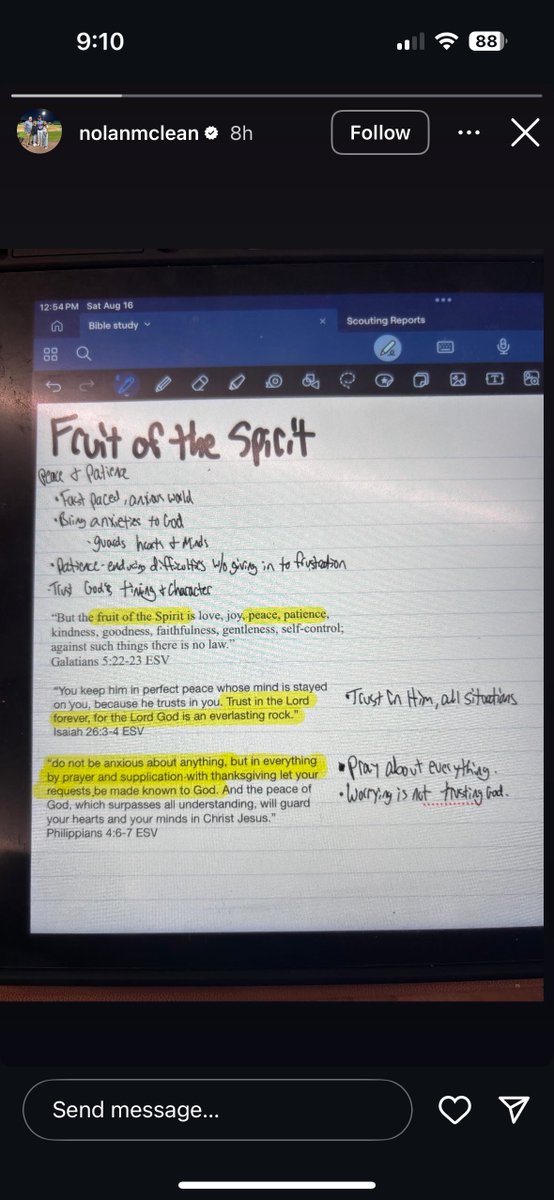 9:10
88
nolanmclean 8h
Follow
12:54 PM Sat Aug 16
Bible study
Scouting Reports
Fruit of the Spirit
Peace & Patience
• Fast paced, anxious world
• Bring anxieties to God
• guards hearts & minds
• Patience - enduring difficulties w/o giving in to frustration
Trust God's timing & character
"But the fruit of the Spirit is love, joy, peace, patience,
kindness, goodness, faithfulness, gentleness, self-control;
against such things there is no law."
Galatians 5:22-23 ESV
"You keep him in perfect peace whose mind is stayed
on you, because he trusts in you. Trust in the Lord
forever, for the Lord God is an everlasting rock."
Isaiah 26:3-4 ESV
• Trust in Him, all situations
"do not be anxious about anything, but in everything
by prayer and supplication with thanksgiving let your
requests be made known to God. And the peace of
God, which surpasses all understanding, will guard
your hearts and your minds in Christ Jesus."
Philippians 4:6-7 ESV
• Pray about everything.
• Worrying is not trusting God.
Send message...